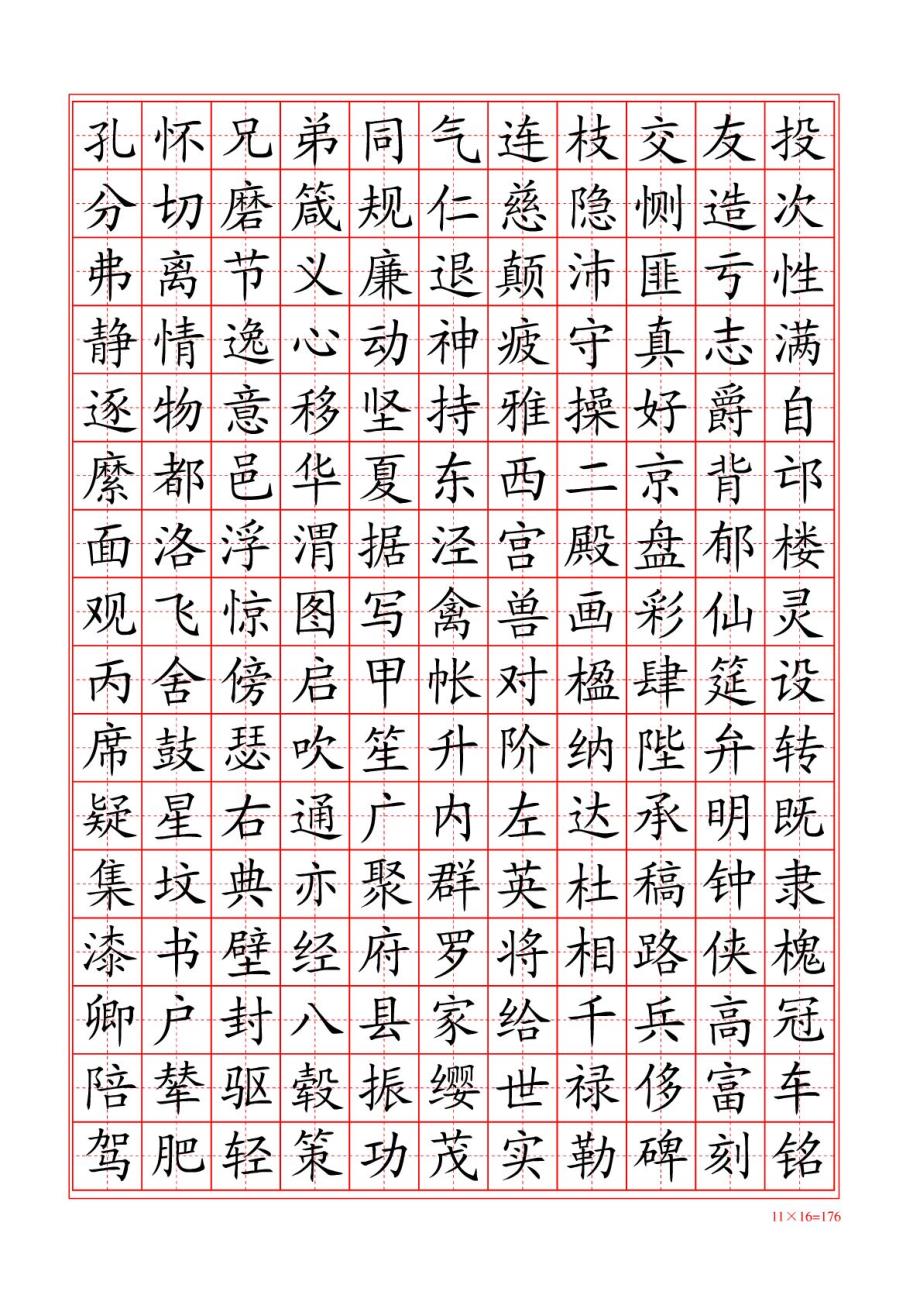 孔怀兄弟同气连枝交友投
分切磨箴规仁慈隐恻造次
弗离节义廉退颠沛匪亏性
静情逸心动神疲守真志满
逐物意移坚持雅操好爵自
縻都邑华夏东西二京背邙
面洛浮渭据泾宫殿盘郁楼
观飞惊图写禽兽画彩仙灵
丙舍傍启甲帐对楹肆筵设
席鼓瑟吹笙升阶纳陛弁转
疑星右通广内左达承明既
集坟典亦聚群英杜稿钟隶
漆书壁经府罗将相路侠槐
卿户封八县家给千兵高冠
陪辇驱毂振缨世禄侈富车
驾肥轻策功茂实勒碑刻铭
11×16=176